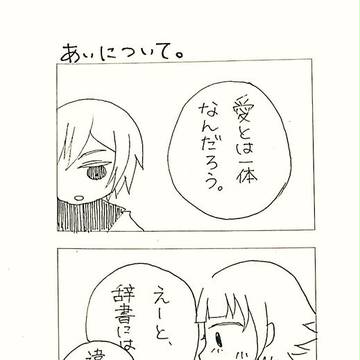 あいについて。
愛とは一体
なんだろう。
えーと、
辞書には
違